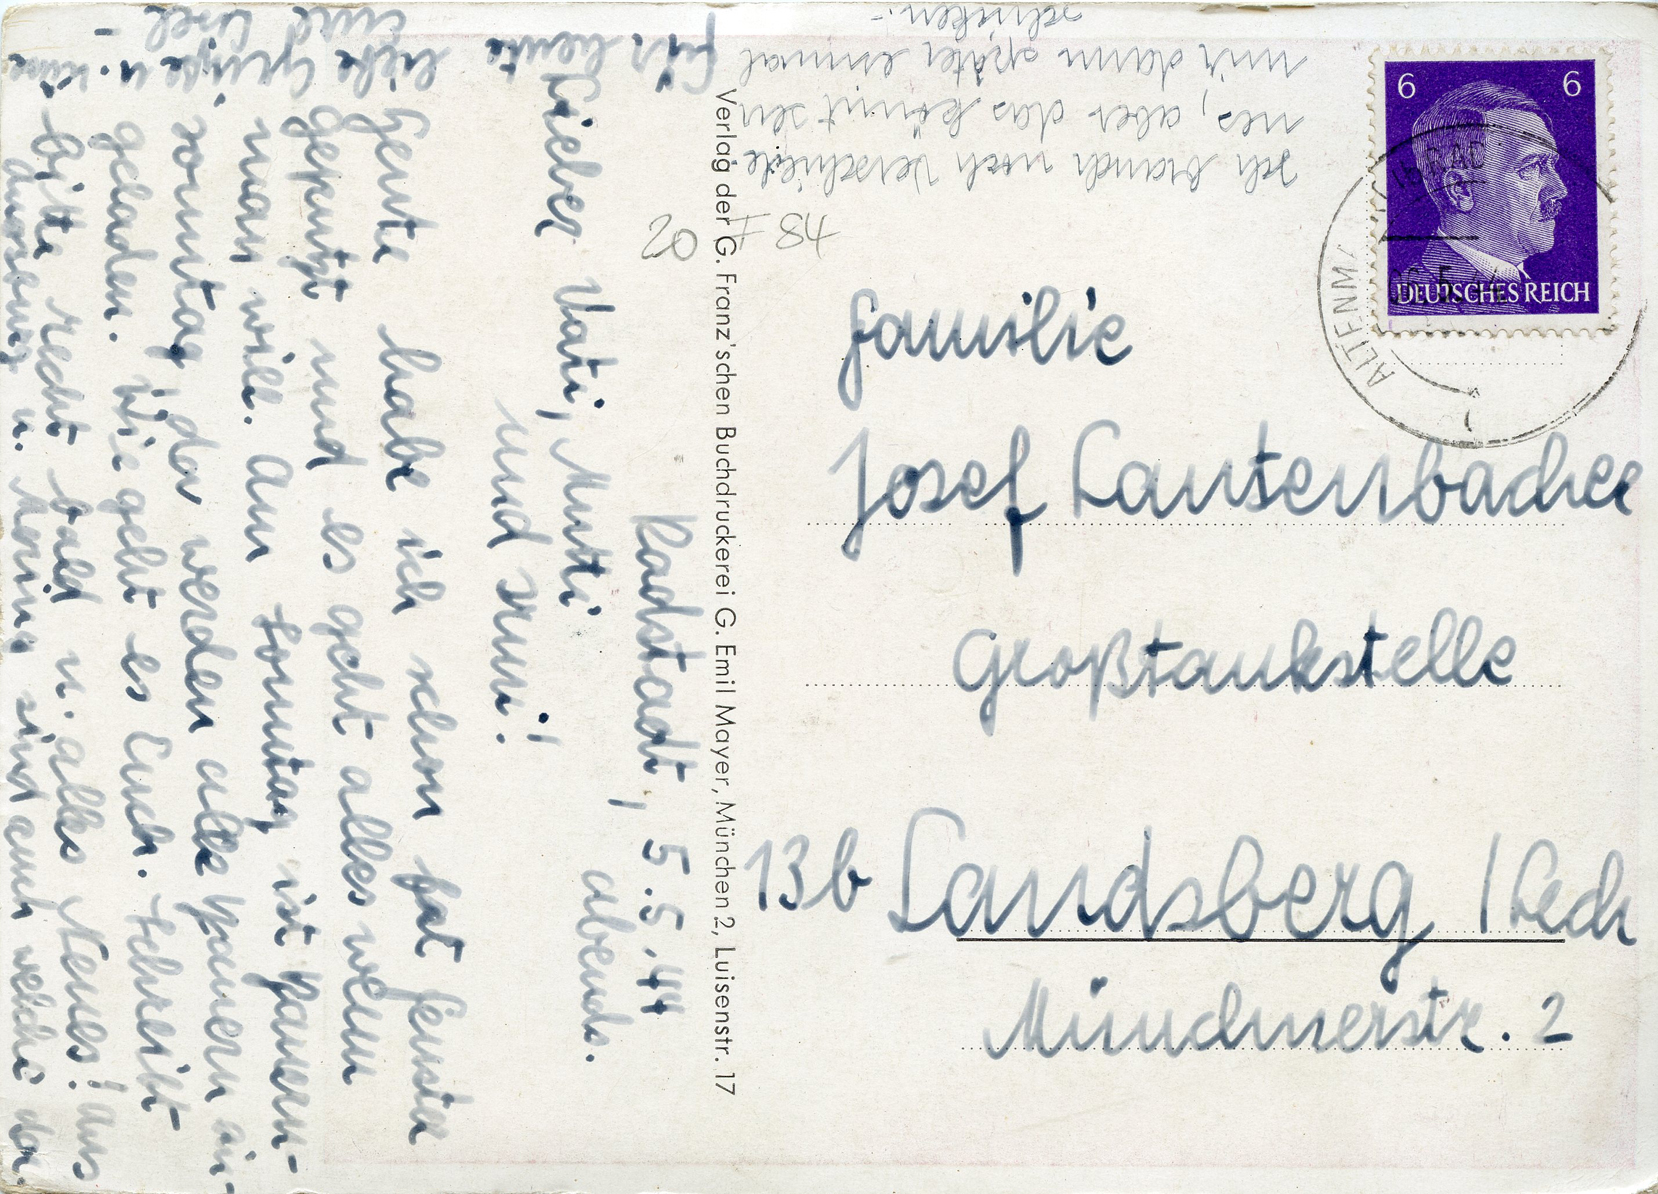 Radstadt, 5.5.44
abends.
Lieber Vati, Mutti
und Mini!
Heute habe ich schon fest Fenster
geputzt und es geht alles wenn
man will. Am Sonntag ist Bauern-
sonntag, da werden alle Bauern ein-
geladen. Wie geht es Euch. Schreibt
bitte recht bald u. alles Neues! Aus
u. sind auch welche da.
Für heute
liebe Grüße u. Küsse
Eure Lisel -
Ich brauch noch verschiede
nes, aber das könnt ihr
mir dann später einmal
schicken.-
20 F 84
Verlag der G. Franz'schen Buchdruckerei G. Emil Mayer, München 2, Luisenstr. 17
6 6
DEUTSCHES REICH
ALTENM
06.5.44
Familie
Josef Lautenbacher
Großtankstelle
13b Landsberg /Lech
Münchnerstr. 2